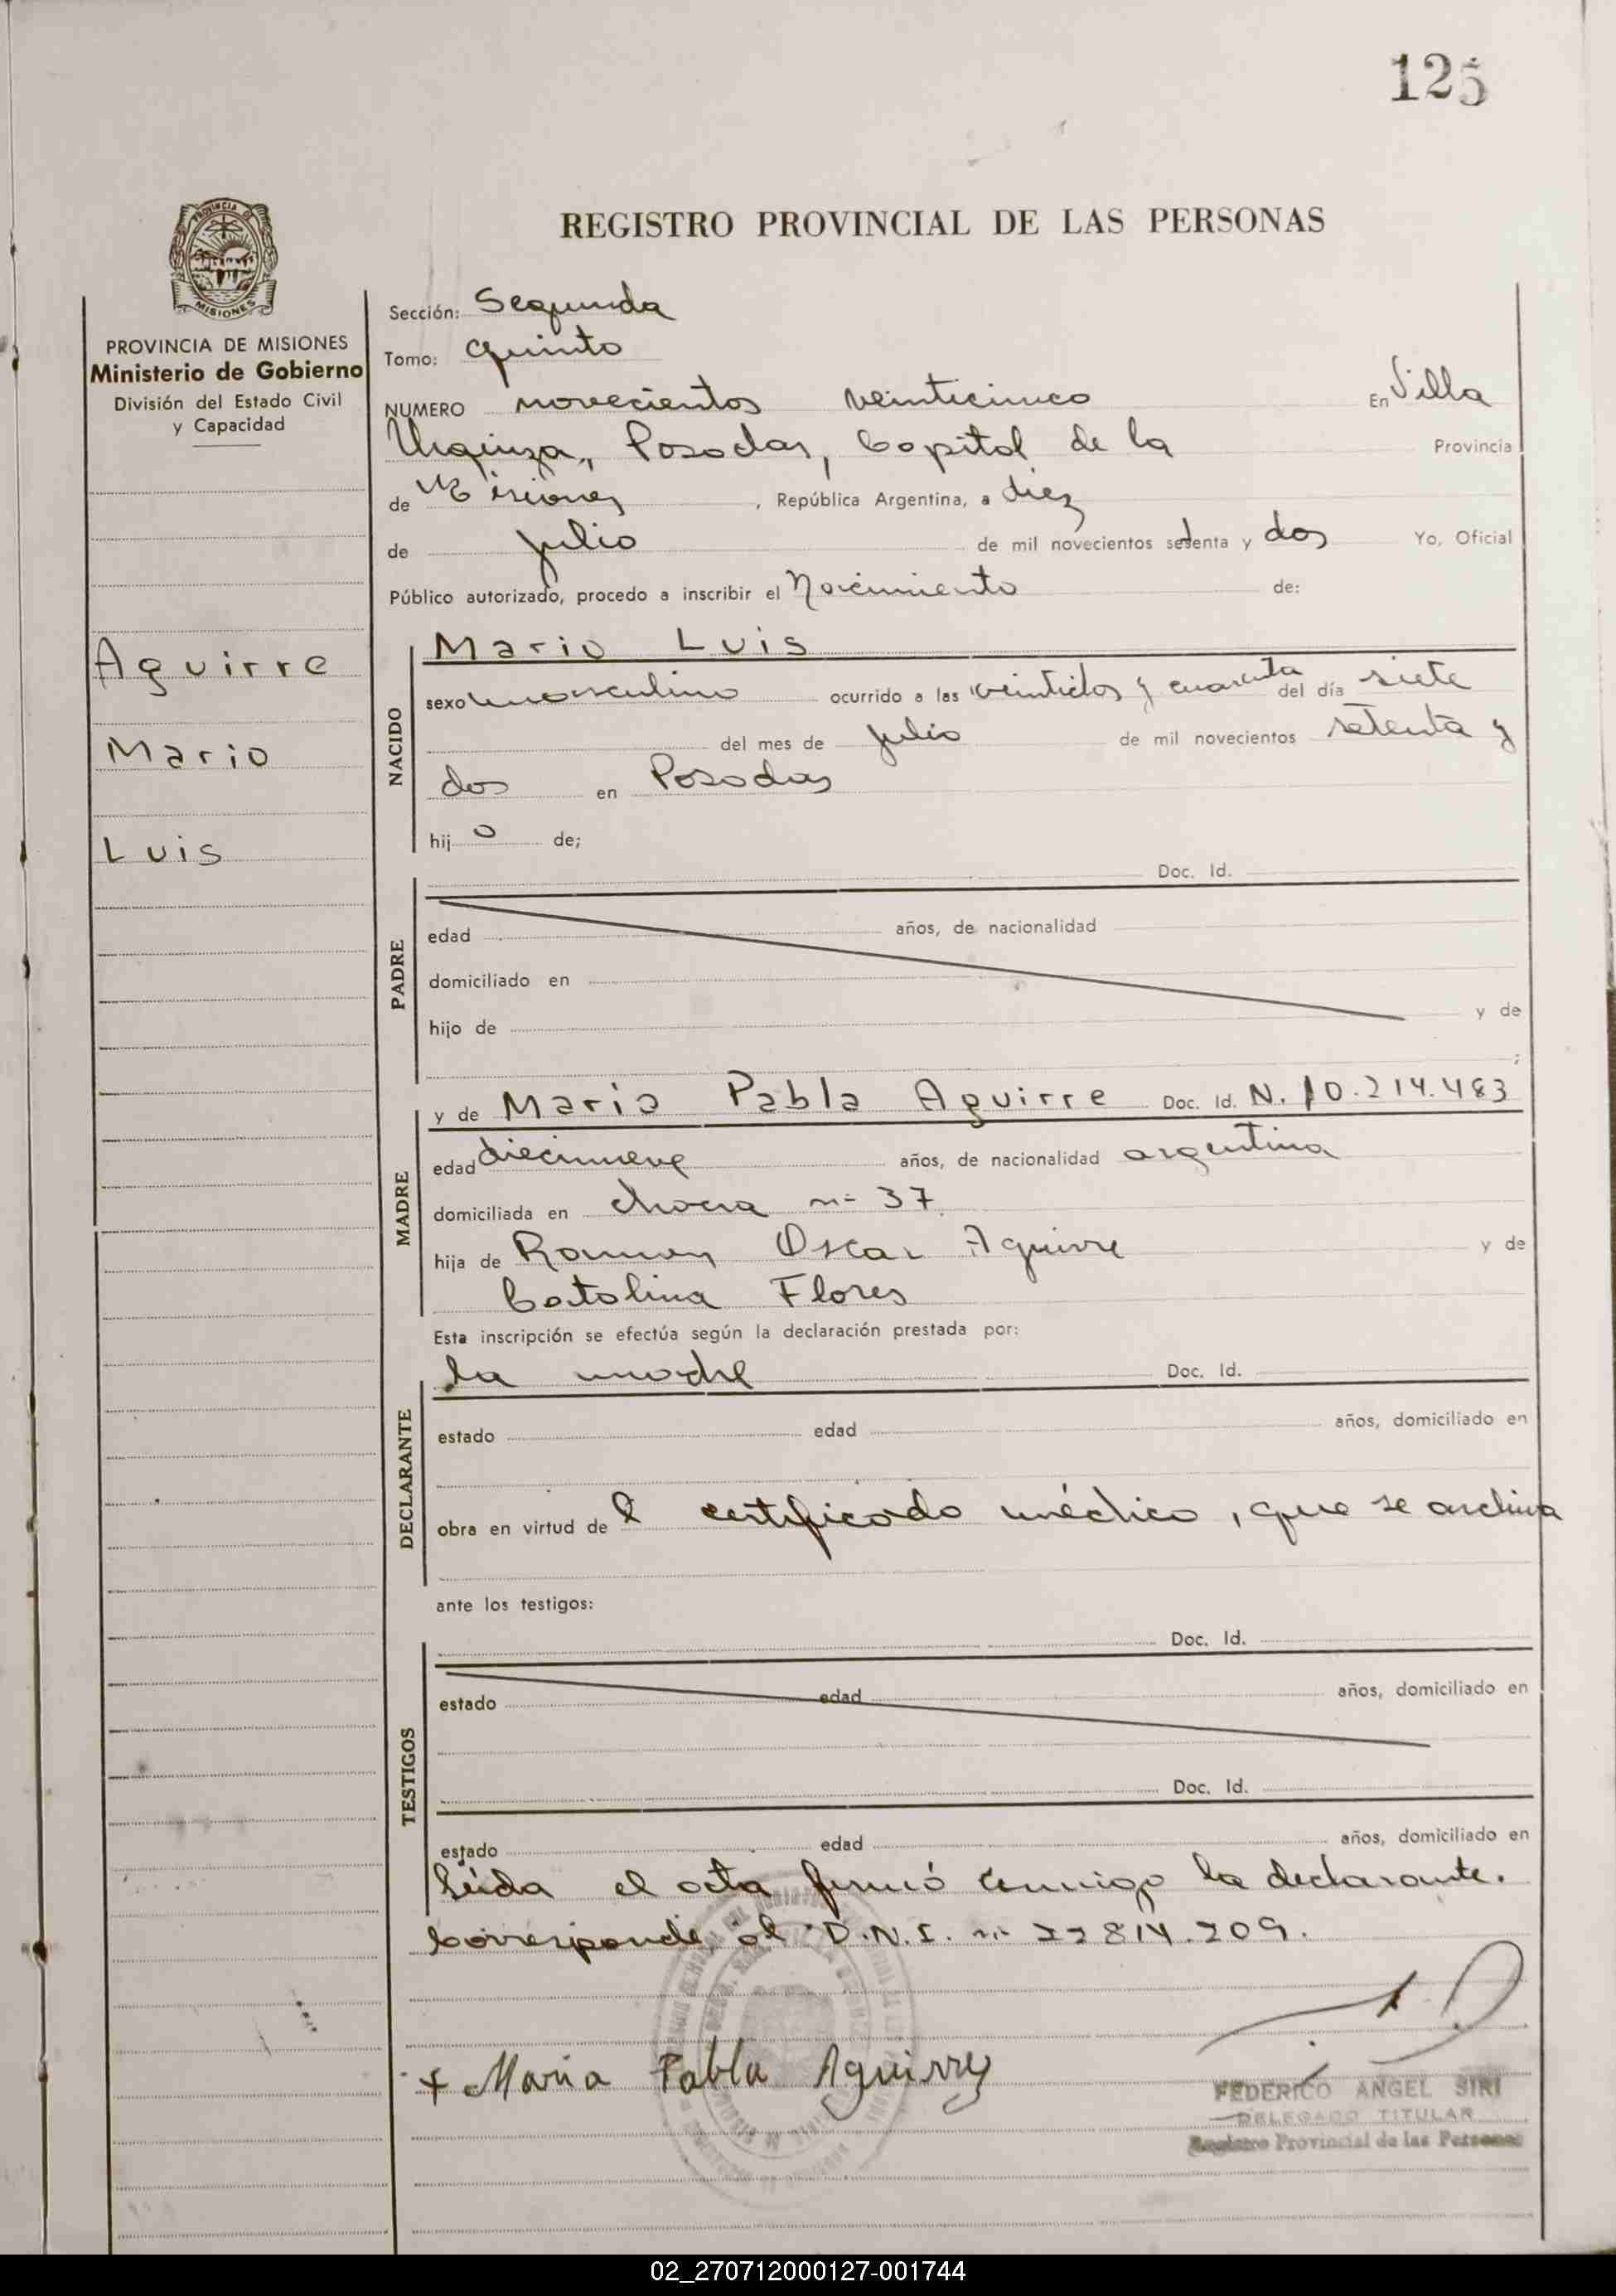 125
PROVINCIA DE MISIONES
REGISTRO PROVINCIAL DE LAS PERSONAS
PROVINCIA DE MISIONES
Ministerio de Gobierno
División del Estado Civil
y Capacidad
Aguirre
Mario
Luis
Sección: Segunda
Tomo: quinto
NUMERO novecientos veinticinco En Villa
Urquiza, Posadas, Capital de la Provincia
de Misiones, República Argentina, a diez
de julio de mil novecientos setenta y dos Yo, Oficial
Público autorizado, procedo a inscribir el Nacimiento de:
NACIDO
Mario Luis
sexo masculino ocurrido a las veintidos y cuarenta del día siete
del mes de julio de mil novecientos setenta y
dos en Posadas
hijo de;
PADRE
Doc. Id.
edad años, de nacionalidad
domiciliado en
hijo de y de
;
MADRE
y de Maria Pabla Aguirre Doc. Id. N. 10.214.483
edad diecinueve años, de nacionalidad argentina
domiciliada en chacra nº 37
hija de Ramon Oscar Aguirre y de
Catalina Flores
Esta inscripción se efectúa según la declaración prestada por:
DECLARANTE
la madre Doc. Id.
estado edad años, domiciliado en
obra en virtud del certificado médico, que se archiva
ante los testigos:
TESTIGOS
Doc. Id.
estado edad años, domiciliado en
Doc. Id.
estado edad años, domiciliado en
Leída el acta firmó conmigo la declarante.
Corresponde al D.N.I. nº 22814.209.
+ Maria Pabla Aguirre
FEDERICO ANGEL SIRI
DELEGADO TITULAR
Registro Provincial de las Personas
02_270712000127-001744